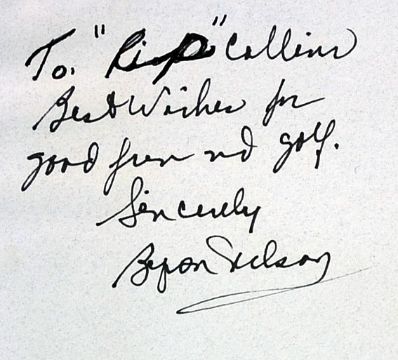 To: "Rip" Collins
Best Wishes for
good fun nd golf.
Sincerely
Byron Nelson